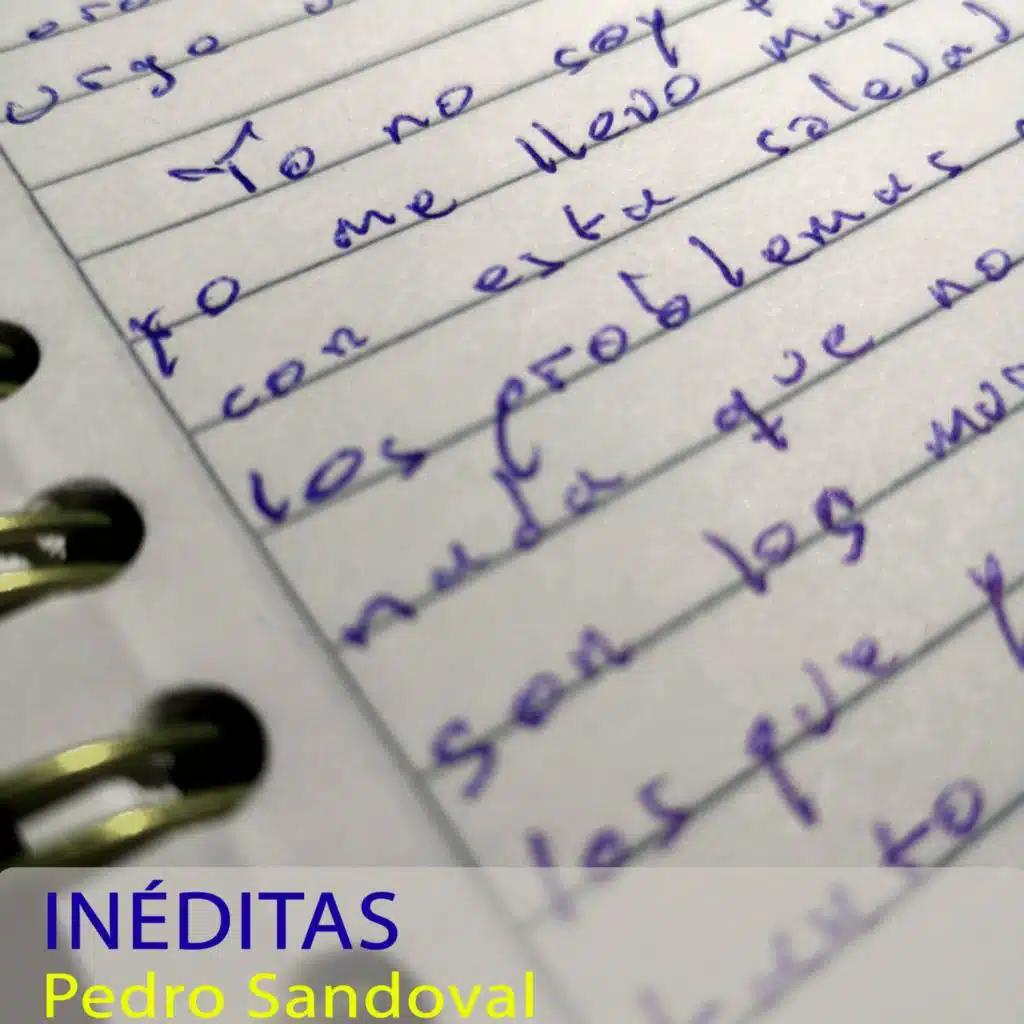 urgo
Yo no soy
yo me llevo mus
con esta soledad
los problemas
nada que no
son los
los que
INÉDITAS
Pedro Sandoval